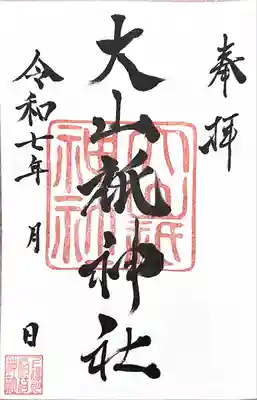 奉拝
大山祇神社
令和七年 月 日